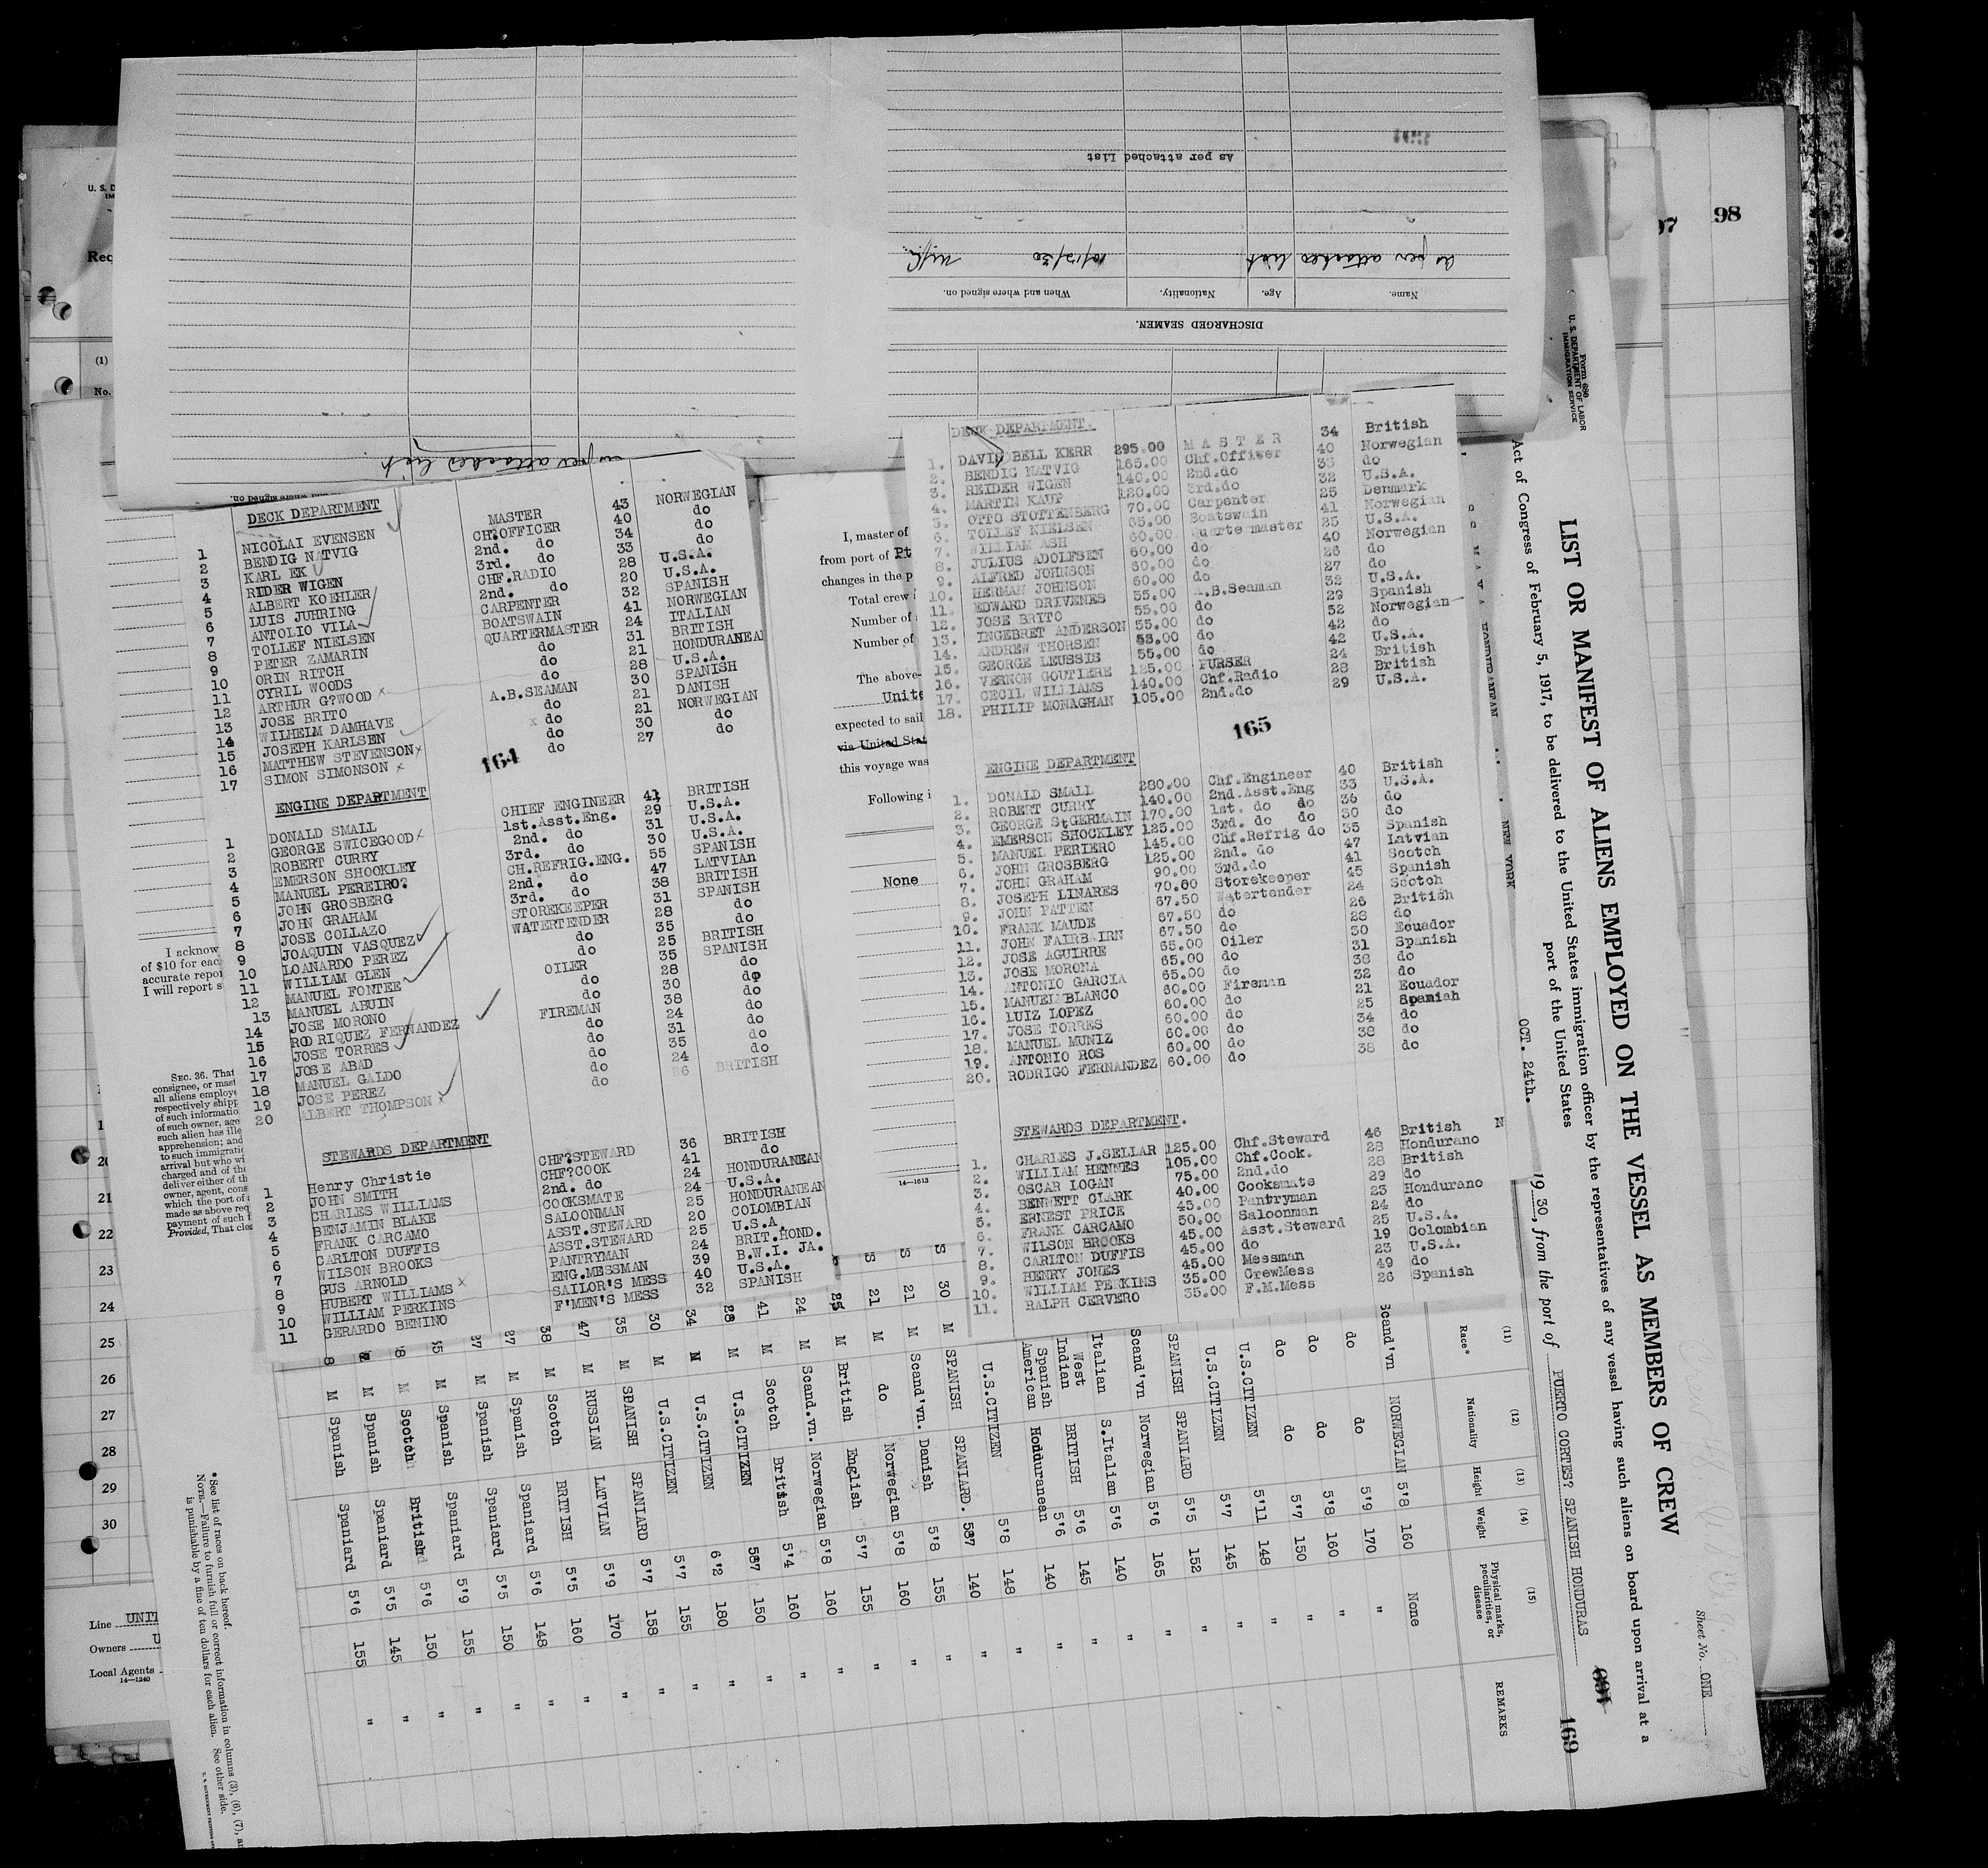 98
97
As per attached List
as per attached list 10/13/30
Name. Age. Nationality. When and where signed on.
DISCHARGED SEAMEN.
as per attached list
DECK DEPARTMENT
1 NICOLAI EVENSEN MASTER 43 NORWEGIAN
2 BENDIG NATVIG CH.OFFICER 40 do
3 KARL EK 2nd. do 34 do
4 RIDER WIGEN 3rd. do 33 do
5 ALBERT KOEHLER CHF.RADIO 28 U.S.A.
6 LUIS JUHRING 2nd. do 20 U.S.A.
7 ANTOLIO VILA CARPENTER 32 SPANISH
8 TOLLEF NIELSEN BOATSWAIN 41 NORWEGIAN
9 PETER ZAMARIN QUARTERMASTER 24 ITALIAN
10 ORIN RITCH do 31 BRITISH
11 CYRIL WOODS do 21 HONDURANEAN
12 ARTHUR G?WOOD x do 28 U.S.A.
13 JOSE BRITO A.B.SEAMAN 30 SPANISH
14 WILHELM DAMHAVE do 21 DANISH
15 JOSEPH KARLSEN x do 21 NORWEGIAN
16 MATTHEW STEVENSON x do 30 do
17 SIMON SIMONSON x do 27 do
164
ENGINE DEPARTMENT
1 DONALD SMALL CHIEF ENGINEER 41 BRITISH
2 GEORGE SWICEGOOD x 1st.Asst.Eng. 29 U.S.A.
3 ROBERT CURRY 2nd. do 31 U.S.A.
4 EMERSON SHOOKLEY 3rd. do 30 U.S.A.
5 MANUEL PEREIRO? CH.REFRIG.ENG. 55 SPANISH
6 JOHN GROSBERG 2nd. do 47 LATVIAn
7 JOHN GRAHAM 3rd. do 38 BRITISH
8 JOSE COLLAZO STOREKEEPER 31 SPANISH
9 JOAQUIN VASQUEZ WATERTENDER 28 do
10 LOANARDO PEREZ do 35 do
11 WILLIAM GLEN do 25 BRITISH
12 MANUEL FONTEE OILER 35 SPANISH
13 MANUEL ABUIN do 28 do
14 JOSE MORONO do 30 do
15 RODRIQUEZ FERNANDEZ FIREMAN 38 do
16 JOSE TORRES do 24 do
17 JOSE ABAD do 31 do
18 MANUEL GALDO do 35 do
19 JOSE PEREZ do 24 do
20 ALBERT THOMPSON x do 26 BRITISH
STEWARDS DEPARTMENT
1 Henry Christie CHF?STEWARD 36 BRITISH
2 JOHN SMITH CHF?COOK 41 do
3 CHARLES WILLIAMS 2nd. do 24 HONDURANEAN
4 BENJAMIN BLAKE COOKSMATE 24 U.S.A.
5 FRANK CARCAMO SALOONMAN 25 HONDURANEAN
6 CARLTON DUFFIS ASST.STEWARD 20 COLOMBIAN
7 WILSON BROOKS ASST.STEWARD 25 U.S.A.
8 GUS ARNOLD PANTRYMAN 24 BRIT.HOND.
9 HUBERT WILLIAMS x ENG.MESSMAN 39 B.W.I. JA.
10 WILLIAM PERKINS SAILOR'S MESS 40 U.S.A.
11 GERARDO BENINO F'MEN'S MESS 32 SPANISH
I, master of
from port of Pt
changes in the p
Total crew
Number of
Number of
The above-
Unite
expected to sail
via United Stat
this voyage was
Following i
None
14—1613
DECK DEPARTMENT.
1. DAVID BELL KERR 295.00 MASTER 34 British
2. BENDIG NATVIG 165.00 Chf.Officer 40 Norwegian
3. REIDER WIGEN 140.00 2nd.do 33 do
4. MARTIN KAUP 120.00 3rd.do 32 U.S.A.
5. OTTO STOTTENBERG 70.00 Carpenter 25 Denmark
6. TOLLEF NIELSEN 65.00 Boatswain 41 Norwegian
7. WILLIAM ASH 60.00 Quartermaster 25 U.S.A.
8. JULIUS ADOLFSEN 60.00 do 40 Norwegian
9. ALFRED JOHNSON 60.00 do 26 do
10. HERMAN JOHNSON 60.00 do 27 do
11. EDWARD DRIVENES 55.00 A.B.Seaman 32 U.S.A.
12. JOSE BRITO 55.00 do 29 Spanish
13. INGEBRET ANDERSON 55.00 do 52 Norwegian
14. ANDREW THORSEN 55.00 do 42 do
15. GEORGE LEUSSIS 55.00 do 42 U.S.A.
16. VERNON GOUTIERE 125.00 PURSER 24 British
17. CECIL WILLIAMS 140.00 Chf.Radio 28 British
18. PHILIP MONAGHAN 105.00 2nd.do 29 U.S.A.
165
ENGINE DEPARTMENT
1. DONALD SMALL 280.00 Chf.Engineer 40 British
2. ROBERT CURRY 140.00 2nd.Asst.Eng 33 U.S.A.
3. GEORGE StGERMAIN 170.00 1st. do do 36 do
4. EMERSON SHOCKLEY 125.00 3rd. do do 30 do
5. MANUEL PERIERO 145.00 Chf.Refrig do 35 Spanish
6. JOHN GROSBERG 125.00 2nd. do 47 Latvian
7. JOHN GRAHAM 90.00 3rd.do 41 Scotch
8. JOSEPH LINARES 70.00 Storekeeper 45 Spanish
9. JOHN PATTEN 67.50 Watertender 24 Scotch
10. FRANK MAUDE 67.50 do 26 British
11. JOHN FAIRBAIRN 67.50 do 28 do
12. JOSE AGUIRRE 65.00 Oiler 30 Ecuador
13. JOSE MORONA 65.00 do 31 Spanish
14. ANTONIO GARCIA 65.00 do 38 do
15. MANUEL BLANCO 60.00 Fireman 32 do
16. LUIZ LOPEZ 60.00 do 21 Ecuador
17. JOSE TORRES 60.00 do 25 Spanish
18. MANUEL MUNIZ 60.00 do 34 do
19. ANTONIO ROS 60.00 do 38 do
20. RODRIGO FERNANDEZ 60.00 do 38 do
STEWARDS DEPARTMENT.
1. CHARLES J.SELLAR 125.00 Chf.Steward 46 British
2. WILLIAM HENNES 105.00 Chf.Cook. 28 Hondurano
3. OSCAR LOGAN 75.00 2nd.do 28 British
4. BENNETT CLARK 40.00 Cooksmate 29 do
5. ERNEST PRICE 45.00 Pantryman 23 Hondurano
6. FRANK CARCAMO 50.00 Saloonman 24 do
7. WILSON BROOKS 45.00 Asst.Steward 25 U.S.A.
8. CARLTON DUFFIS 45.00 do 19 Colombian
9. HENRY JONES 45.00 Messman 23 U.S.A.
10. WILLIAM PERKINS 35.00 CrewMess 49 do
11. RALPH CERVERO 35.00 F.M.Mess 26 Spanish
Form 680
U. S. DEPARTMENT OF LABOR
IMMIGRATION SERVICE
Sheet No. ONE
LIST OR MANIFEST OF ALIENS EMPLOYED ON THE VESSEL AS MEMBERS OF CREW
Act of Congress of February 5, 1917, to be delivered to the United States immigration officer by the representatives of any vessel having such aliens on board upon arrival at a
port of the United States
NEW YORK OCT. 24th. 1930, from the port of PUERTO CORTES? SPANISH HONDURAS
169
(11) Race* (12) Nationality (13) Height (14) Weight (15) Physical marks, peculiarities, or disease REMARKS
Scand'vn NORWEGIAN 5'8 160 None
do do 5'9 170 "
do do 5'8 160 "
do do 5'7 150 "
U.S.CITIZEN 5'11 148 "
U.S.CITIZEN 5'7 145 "
SPANISH SPANIARD 5'5 152 "
Scand'vn Norwegian 5'6 165 "
Italian S.Italian 5'6 140 "
West Indian BRITISH 5'6 145 "
Spanish American Honduranean 5'6 140 "
U.S.CITIZEN 5'8 148 "
30 M SPANISH SPANIARD. 5'7 140 "
21 M Scand'vn. Danish 5'8 155 "
21 M do Norwegian 5'8 160 "
M British English 5'7 155 "
24 M Scand.vn. Norwegian 5'8 160 "
41 M Scotch British 5'4 160 "
28 M U.S.CITIZEN 5'7 150 "
34 M U.S.CITIZEN 6'2 180 "
30 M U.S.CITIZEN 5'7 155 "
35 M SPANISH SPANIARD 5'7 158 "
47 M RUSSIAN LATVIAN 5'9 170 "
38 M Scotch BRITISH 5'5 160 "
27 M Spanish Spaniard 5'6 148 "
27 M Spanish Spaniard 5'5 150 "
M Spanish Spaniard 5'9 155 "
M Scotch British 5'6 150 "
M Spanish Spaniard 5'5 145 "
M Spanish Spaniard 5'6 155 "
*See list of races on back hereof.
NOTE.—Failure to furnish full or correct information in columns (3), (6), (7),
is punishable by a fine of ten dollars for each alien. See other side.
I acknow
of $10 for each
accurate repor
I will report s
SEC. 36. That
consignee, or mast
all aliens employe
respectively shipp
of such informatio
of such owner, age
such alien has ille
apprehension; and
to such immigratio
arrival but who wi
charged and of the
deliver either of th
owner, agent, cons
which the port of
made as above req
payment of such
Provided, That cle
U. S. D
IM
Req
(1)
No.
20
21
22
23
24
25
26
27
28
29
30
Line UNIT
Owners U
Local Agents
14—1240